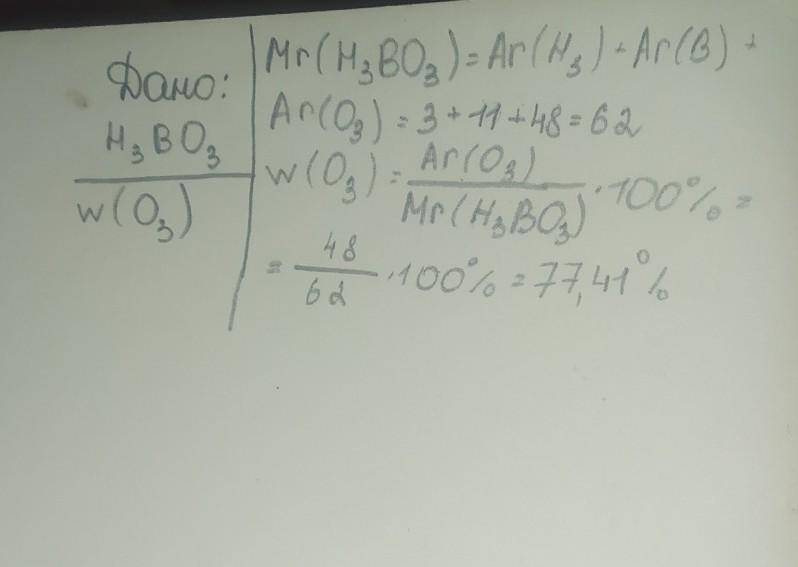 Дано:
H₃BO₃
w(O₃)
Mr(H₃BO₃)=Ar(H₃)+Ar(B)+
Ar(O₃)=3+11+48=62
w(O₃)=Ar(O₃)/Mr(H₃BO₃)·100%=
=48/62·100%=77,41%